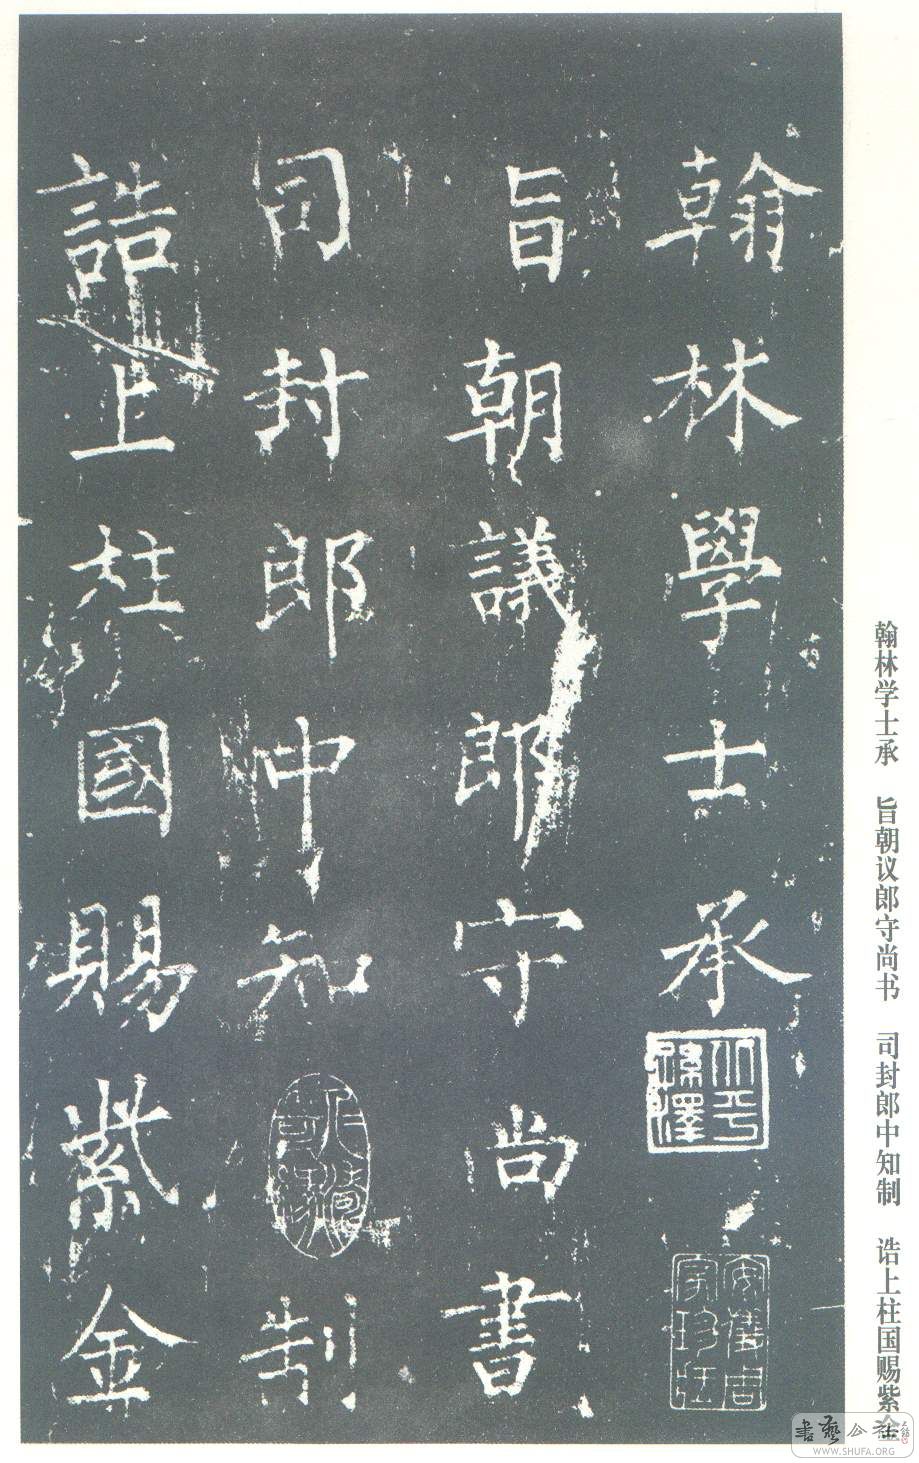 翰林學士承
旨朝議郎守尚書
司封郎中知制
誥上柱國賜紫金
翰林学士承 旨朝议郎守尚书 司封郎中知制 诰上柱国赐紫金
安儀周家珍藏
書藝公社
WWW.SHUFA.ORG